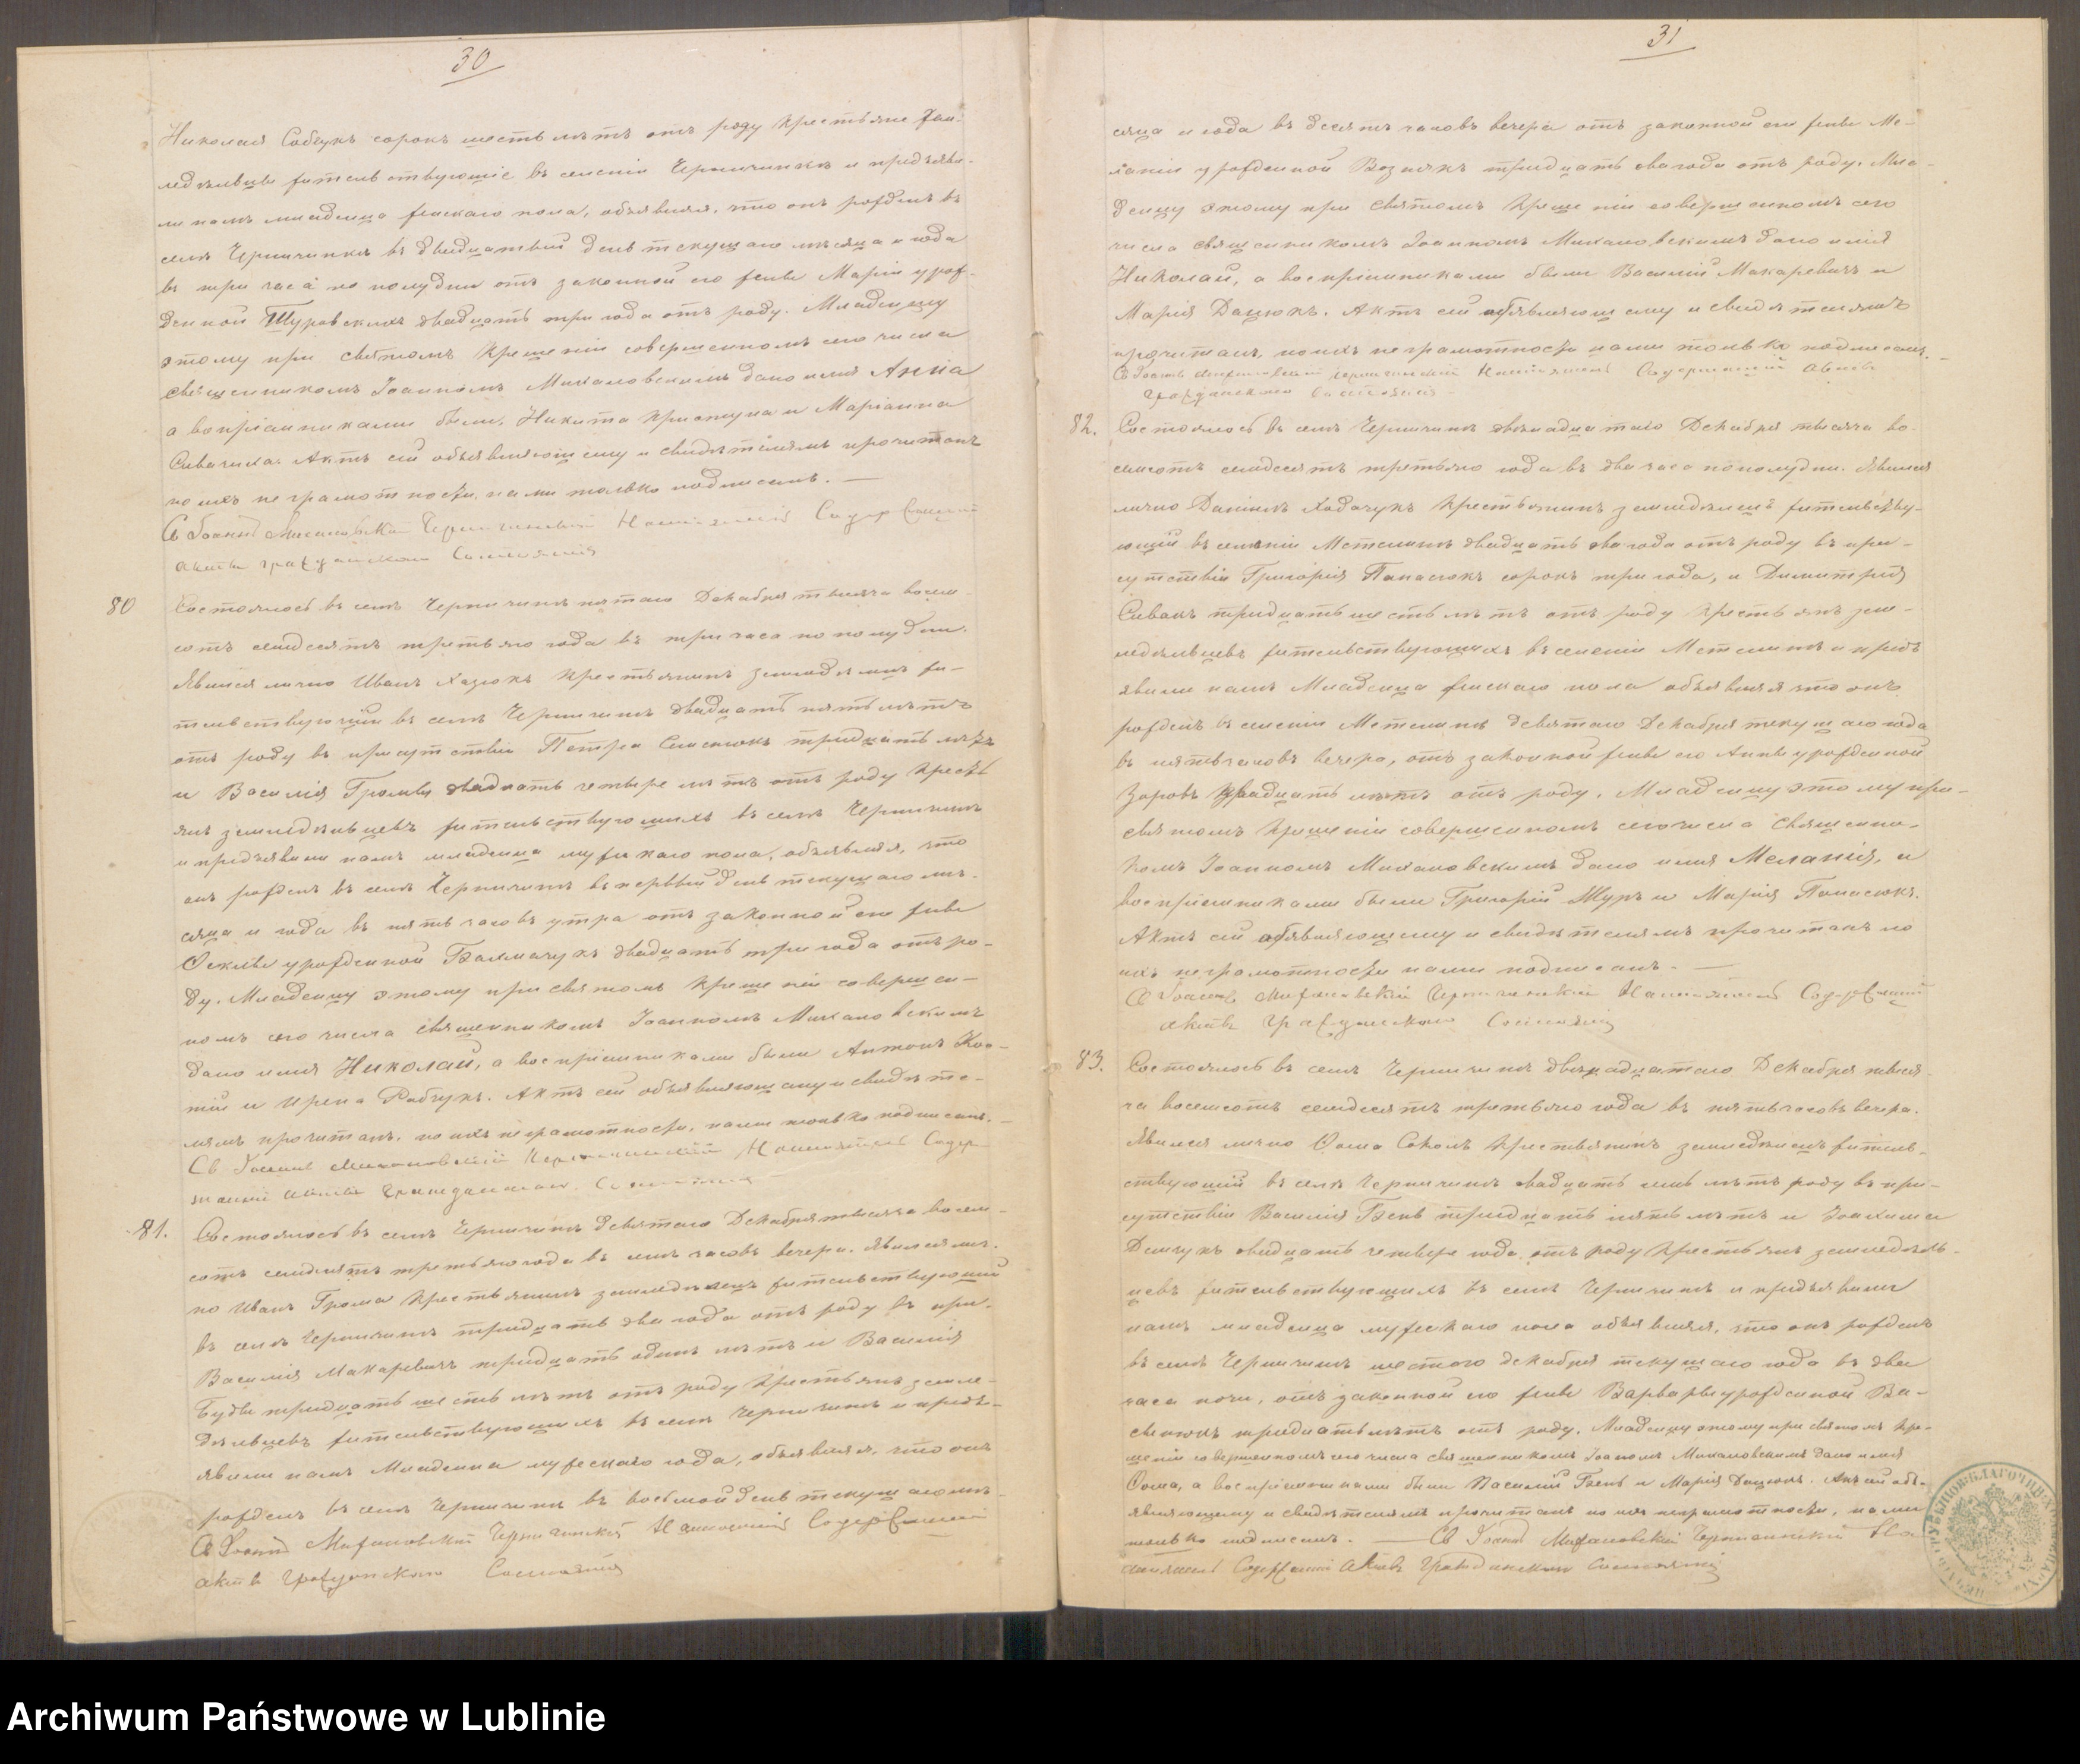 30
Николая Собчукъ сорокъ шесть лѣтъ отъ роду крестьяне зем-
ледѣльцы жительствующіе въ селеніи Черничинкѣ и предъяви-
ли намъ младенца женскаго пола, объявляя, что онъ рожденъ въ
селѣ Черничинкѣ въ двадцатый день текущаго мѣсяца и года
въ три часа по полудни отъ законной его жены Маріи урож-
денной Щуровскихъ двадцать три года отъ роду. Младенцу
этому при святомъ крещеніи совершенномъ сего числа
священникомъ Іоанномъ Михаловскимъ дано имя Анна
а вопріемниками были, Никита и Маріанна
Сивачука. Актъ сей объявляющему и свидѣтелямъ прочитанъ
по ихъ неграмотности, нами только подписанъ. —
Св Іоаннъ Михаловскій Черничинскій Настоятель Содержащій
акты гражданскаго Состоянія
80 Состоялось въ селѣ Черничинѣ пятаго Декабря тысяча восем-
сотъ семдесятъ третьяго года въ три часа по полудни.
Явился лично Иванъ Хазюкъ крестьянинъ земледѣлецъ жи-
тельствующій въ селѣ Черничинѣ двадцать пять лѣтъ
отъ роду въ присутствіи Петра Семенюкъ тридцать лѣтъ
и Василія Громы двадцать четыре лѣтъ отъ роду кресть
янъ земледѣльцевъ жительствующихъ въ селѣ Черничинѣ
и предъявили намъ младенца мужскаго пола, объявляя, что
онъ рожденъ въ селѣ Черничинѣ въ первый день текущаго мѣ-
сяца и года въ пять часовъ утра отъ законной его жены
Феклы урожденной двадцать три года отъ ро-
ду. Младенцу этому при святомъ крещеніи совершен-
номъ сего числа священникомъ Іоанномъ Михаловскимъ
дано имя Николай, а воспріемниками были Антонъ
и Ирена Рабчукъ. Актъ сей объявляющему и свидѣте-
лямъ прочитанъ, по ихъ неграмотности, нами только подписанъ. —
Св Іоаннъ Михаловскій Черничинскій Настоятель Содер
жащій акты Гражданскаго Состоянія
81. Состоялось въ селѣ Черничинѣ девятаго Декабря тысяча восем-
сотъ семдесятъ третьяго года въ семь часовъ вечера. Явился лич-
но Иванъ Грома крестьянинъ земледѣлецъ жительствующій
въ селѣ Черничинѣ тридцать два года отъ роду въ при-
Василія Макаревичъ тридцать одинъ лѣтъ и Василія
Будзы тридцать шесть лѣтъ отъ роду крестьянъ земле-
дѣльцевъ жительствующихъ въ селѣ Черничинѣ и предъ-
явили намъ Младенца мужескаго года, объявляя, что онъ
рожденъ въ селѣ Черничинѣ въ восьмой день текущаго мѣ-
Св Іоаннъ Михаловскій Черничинскій Настоятель Содержащій
акты Гражданскаго Состоянія
31
сяца и года въ десять часовъ вечера отъ законной его жены Ме-
ланіи урожденной Вознякъ тридцать два года отъ роду. Мла-
денцу этому при святомъ крещеніи совершенномъ сего
числа священникомъ Іоанномъ Михаловскимъ дано имя
Николай, а воспріемниками были Василій Макаревичъ и
Марія Дацюкъ. Актъ сей объявляющему и свидѣтелямъ
прочитанъ, по ихъ неграмотности нами только подписанъ. —
Св Іоаннъ Михаловскій Черничинскій Настоятель Содержащій акты
гражданскаго состоянія
82. Состоялось въ селѣ Черничинѣ двѣнадцатаго Декабря тысяча во-
семсотъ семдесятъ третьяго года въ два часа по полудни. Явился
лично Даніилъ Ходачукъ крестьянинъ земледѣлецъ жительству-
ющій въ селеніи Метелинѣ двадцать два года отъ роду въ при-
сутствіи Григорія Панасюкъ сорокъ три года, и Димитрія
Сивакъ тридцать шесть лѣтъ отъ роду крестьянъ зем-
ледѣльцевъ жительствующихъ въ селеніи Метелинѣ и предъ
явили намъ Младенца женскаго пола объявляя что онъ
рожденъ въ селеніи Метелинѣ девятаго Декабря текущаго года
въ пять часовъ вечера, отъ законной жены его Анны урожденной
Зоровъ двадцать лѣтъ отъ роду. Младенцу этому при-
святомъ крещеніи совершенномъ сего числа священни-
комъ Іоанномъ Михаловскимъ дано имя Меланія, и
воспріемниками были Григорій Щуръ и Марія Панасюкъ.
Актъ сей объявляющему и свидѣтелямъ прочитанъ по
ихъ неграмотности нами подписанъ. —
Св Іоаннъ Михаловскій Черничинскій Настоятель Содержащій
акты Гражданскаго Состоянія
83. Состоялось въ селѣ Черничинѣ двѣнадцатаго Декабря тыся-
ча восемсотъ семдесятъ третьяго года въ пять часовъ вечера.
Явился лично Фома Соколъ крестьянинъ земледѣлецъ житель-
ствующій въ селѣ Черничинѣ двадцать семь лѣтъ роду въ при-
сутствіи Василія Гбенъ тридцать пять лѣтъ и Іоакима
Демчукъ двадцать четыре года отъ роду крестьянъ земледѣль-
цевъ жительствующихъ въ селѣ Черничинѣ и предъявили
намъ младенца мужескаго пола объявляя, что онъ рожденъ
въ селѣ Черничинѣ шестого декабря текущаго года въ два
часа ночи, отъ законной его жены Варвары урожденной Ва-
сенюкъ тридцать лѣтъ отъ роду. Младенцу этому при святомъ кре-
щеніи совершенномъ сего числа священникомъ Іоанномъ Михаловскимъ дано имя
Фома, а воспріемниками были Василій Гбенъ и Марія Дацюкъ. Актъ сей объ-
являющему и свидѣтелямъ прочитанъ по ихъ неграмотности, нами
только подписанъ. — Св Іоаннъ Михаловскій Черничинскій На
стоятель Содержащій Акты Гражданскаго Состоянія
Archiwum Państwowe w Lublinie